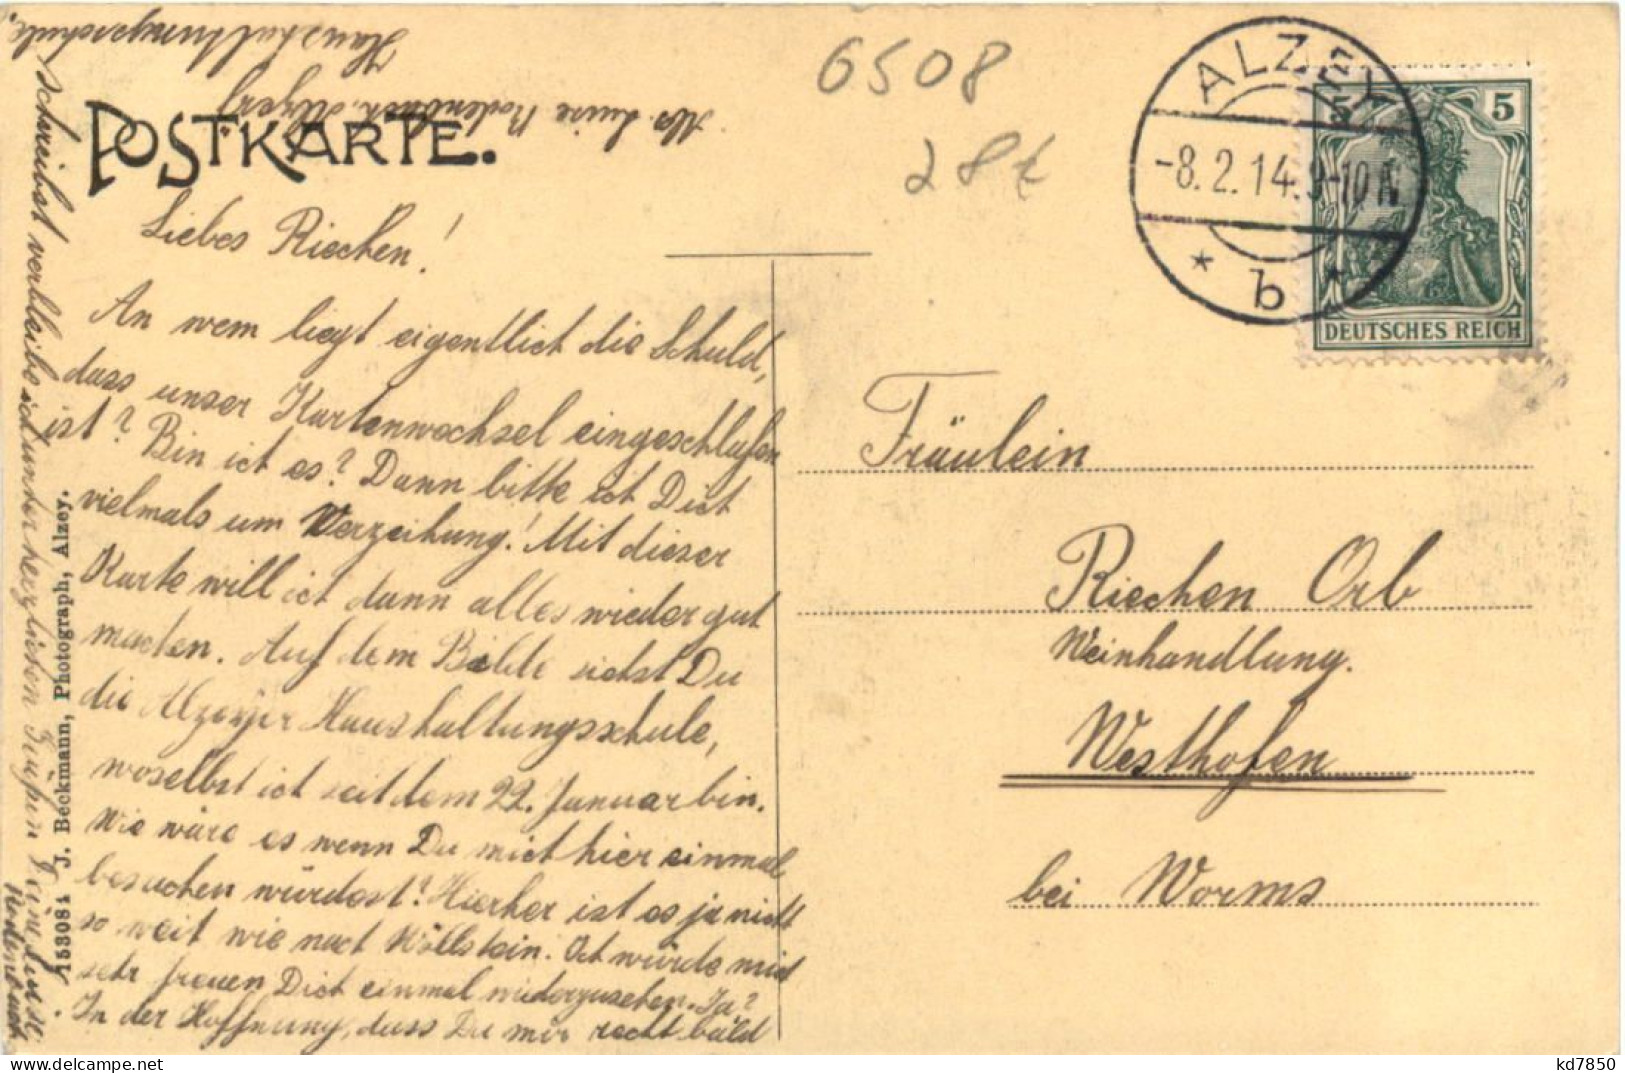 Abs. Luise Rodenbach, Alzey
Haushaltungsschule.
POSTKARTE.
6508
ALZEY
-8.2.14. 9-10 N
* b *
5 5
DEUTSCHES REICH
Liebes Riechen!
An wem liegt eigentlich die Schuld,
dass unser Kartenwechsel eingeschlafen
ist? Bin ich es? Dann bitte ich Dich
vielmals um Verzeihung! Mit dieser
Karte will ich dann alles wieder gut
machen. Auf dem Bilde siehst Du
die Alzeyer Haushaltungsschule,
woselbst ich seit dem 22. Januar bin.
Wie wäre es wenn Du mich hier einmal
besuchen würdest? Hierher ist es ja nicht
so weit wie nach Wöllstein. Ich würde mich
sehr freuen Dich einmal wiederzusehen. Ja?
In der Hoffnung, dass Du mir recht bald
schreibst verbleibe ich unter herzlichen Grüßen Deine Luise
Rodenbach
153081 J. Beckmann, Photograph, Alzey.
Fräulein
Riechen Orb
Weinhandlung.
Westhofen
bei Worms
kd7850